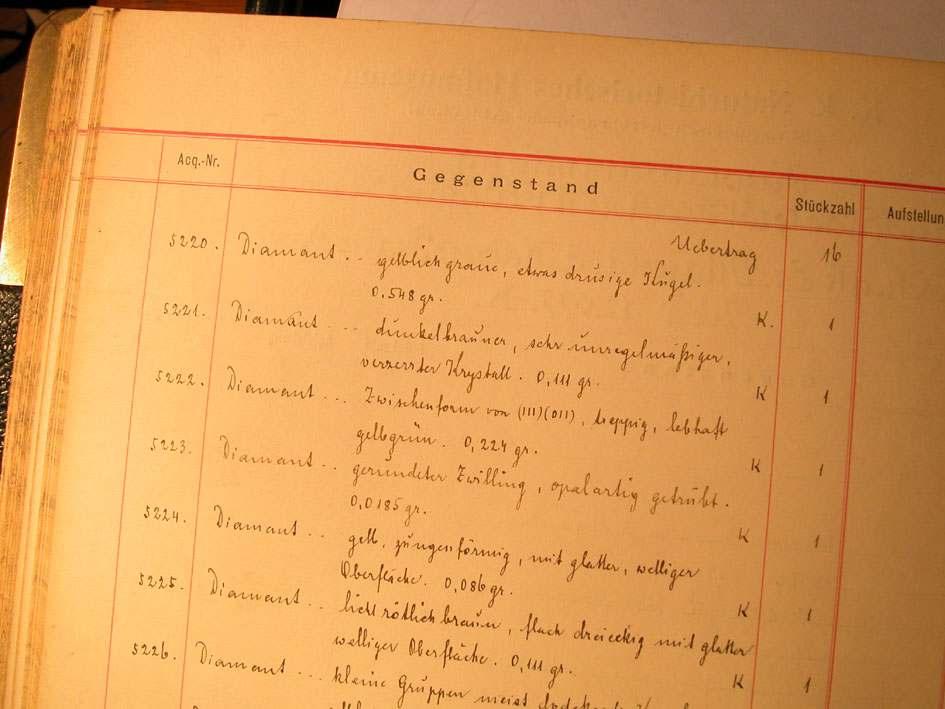 Acq.-Nr. Gegenstand Stückzahl Aufstellun
Uebertrag 16
5220. Diamant .. gelblichgraue, etwas drusige Kugel.
0,548 gr. K. 1
5221. Diamant ... dunkelbrauner, sehr unregelmäßiger,
verzerrter Krystall. 0,111 gr. K 1
5222. Diamant ... Zwischenform von (111)(011), treppig, lebhaft
gelbgrün. 0,224 gr. K 1
5223. Diamant .. gerundeter Zwilling, opalartig getrübt.
0,0185 gr. K 1
5224. Diamant .. gelb, zungenförmig, mit glatter, welliger
Oberfläche. 0,086 gr. K 1
5225. Diamant .. licht rötlich brauner, flach dreieckig mit glatter
welliger Oberfläche. 0,111 gr. K 1
5226. Diamant ... kleine Gruppen meist